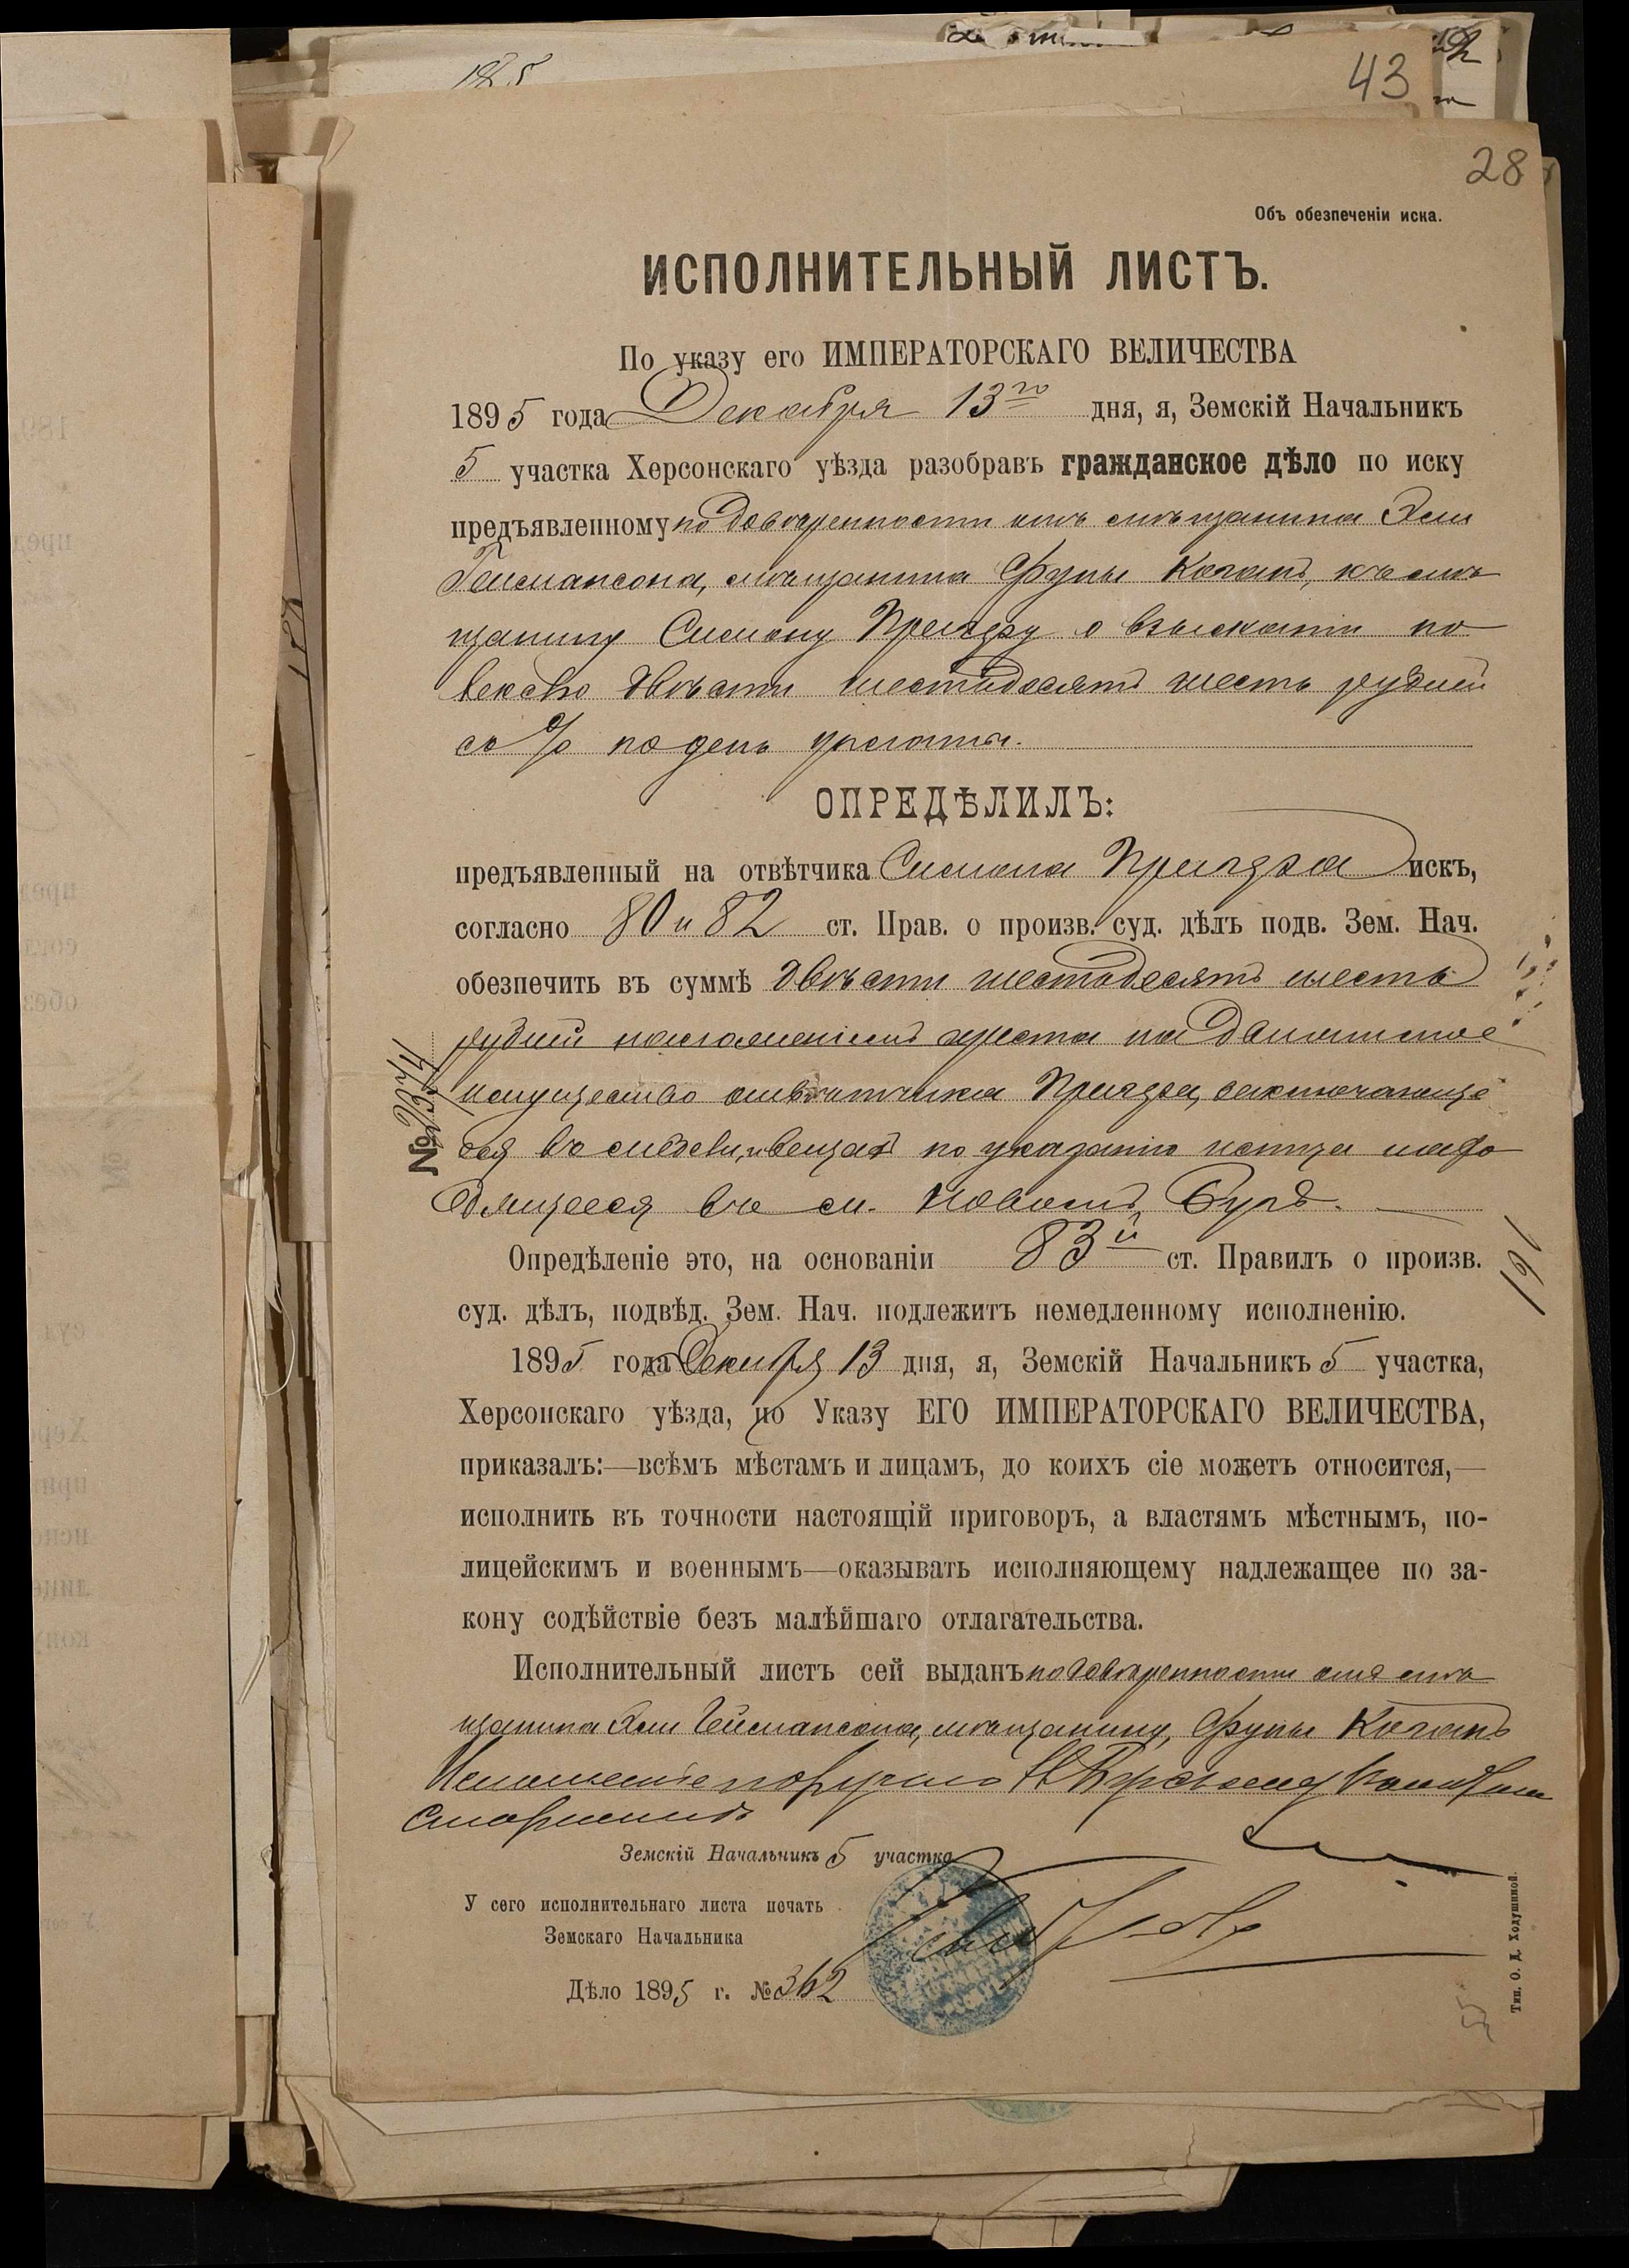 43
28
Объ обезпеченіи иска.
ИСПОЛНИТЕЛЬНЫЙ ЛИСТЪ.
По указу его ИМПЕРАТОРСКАГО ВЕЛИЧЕСТВА
1895 года Декабря 13го дня, я, Земскій Начальникъ
5 участка Херсонскаго уѣзда разобравъ гражданское дѣло по иску
предъявленному по довѣренности отъ мѣщанина Хаи
Гейсмансона, мѣщанина Фупы Коганъ, къ мѣ-
щанину Симону о взысканіи по
векселю двѣсти шестидесятъ шесть рублей
съ % по день уплаты.
ОПРЕДѢЛИЛЪ:
предъявленный на отвѣтчика Симона искъ,
согласно 80 и 82 ст. Прав. о произв. суд. дѣлъ подв. Зем. Нач.
обезпечить въ суммѣ двѣсти шестьдесятъ шесть
рублей наложеніемъ ареста на движимое
имущество отвѣтчика заключающе
еся въ мебели, и вещахъ по указанію истца нахо
дящееся въ м. Новомъ Бугѣ.
Опредѣленіе это, на основаніи 83й ст. Правилъ о произв.
суд. дѣлъ, подвѣд. Зем. Нач. подлежитъ немедленному исполненію.
1895 года Декабря 13 дня, я, Земскій Начальникъ 5 участка,
Херсонскаго уѣзда, по Указу ЕГО ИМПЕРАТОРСКАГО ВЕЛИЧЕСТВА,
приказалъ:—всѣмъ мѣстамъ и лицамъ, до коихъ сіе можетъ относится,—
исполнить въ точности настоящій приговоръ, а властямъ мѣстнымъ, по-
лицейскимъ и военнымъ—оказывать исполняющему надлежащее по за-
кону содѣйствіе безъ малѣйшаго отлагательства.
Исполнительный листъ сей выданъ по довѣренности отъ мѣ
щанина Хаи Гейсмансона, мѣщанину, Фупы Коганъ
Исполненіе поручено Н Бугскому Волостном
Старшинѣ
Земскій Начальникъ 5 участка
У сего исполнительнаго листа печать
Земскаго Начальника
Дѣло 1895 г. № 362
№
191
Тип. О. Д. Ходушиной.